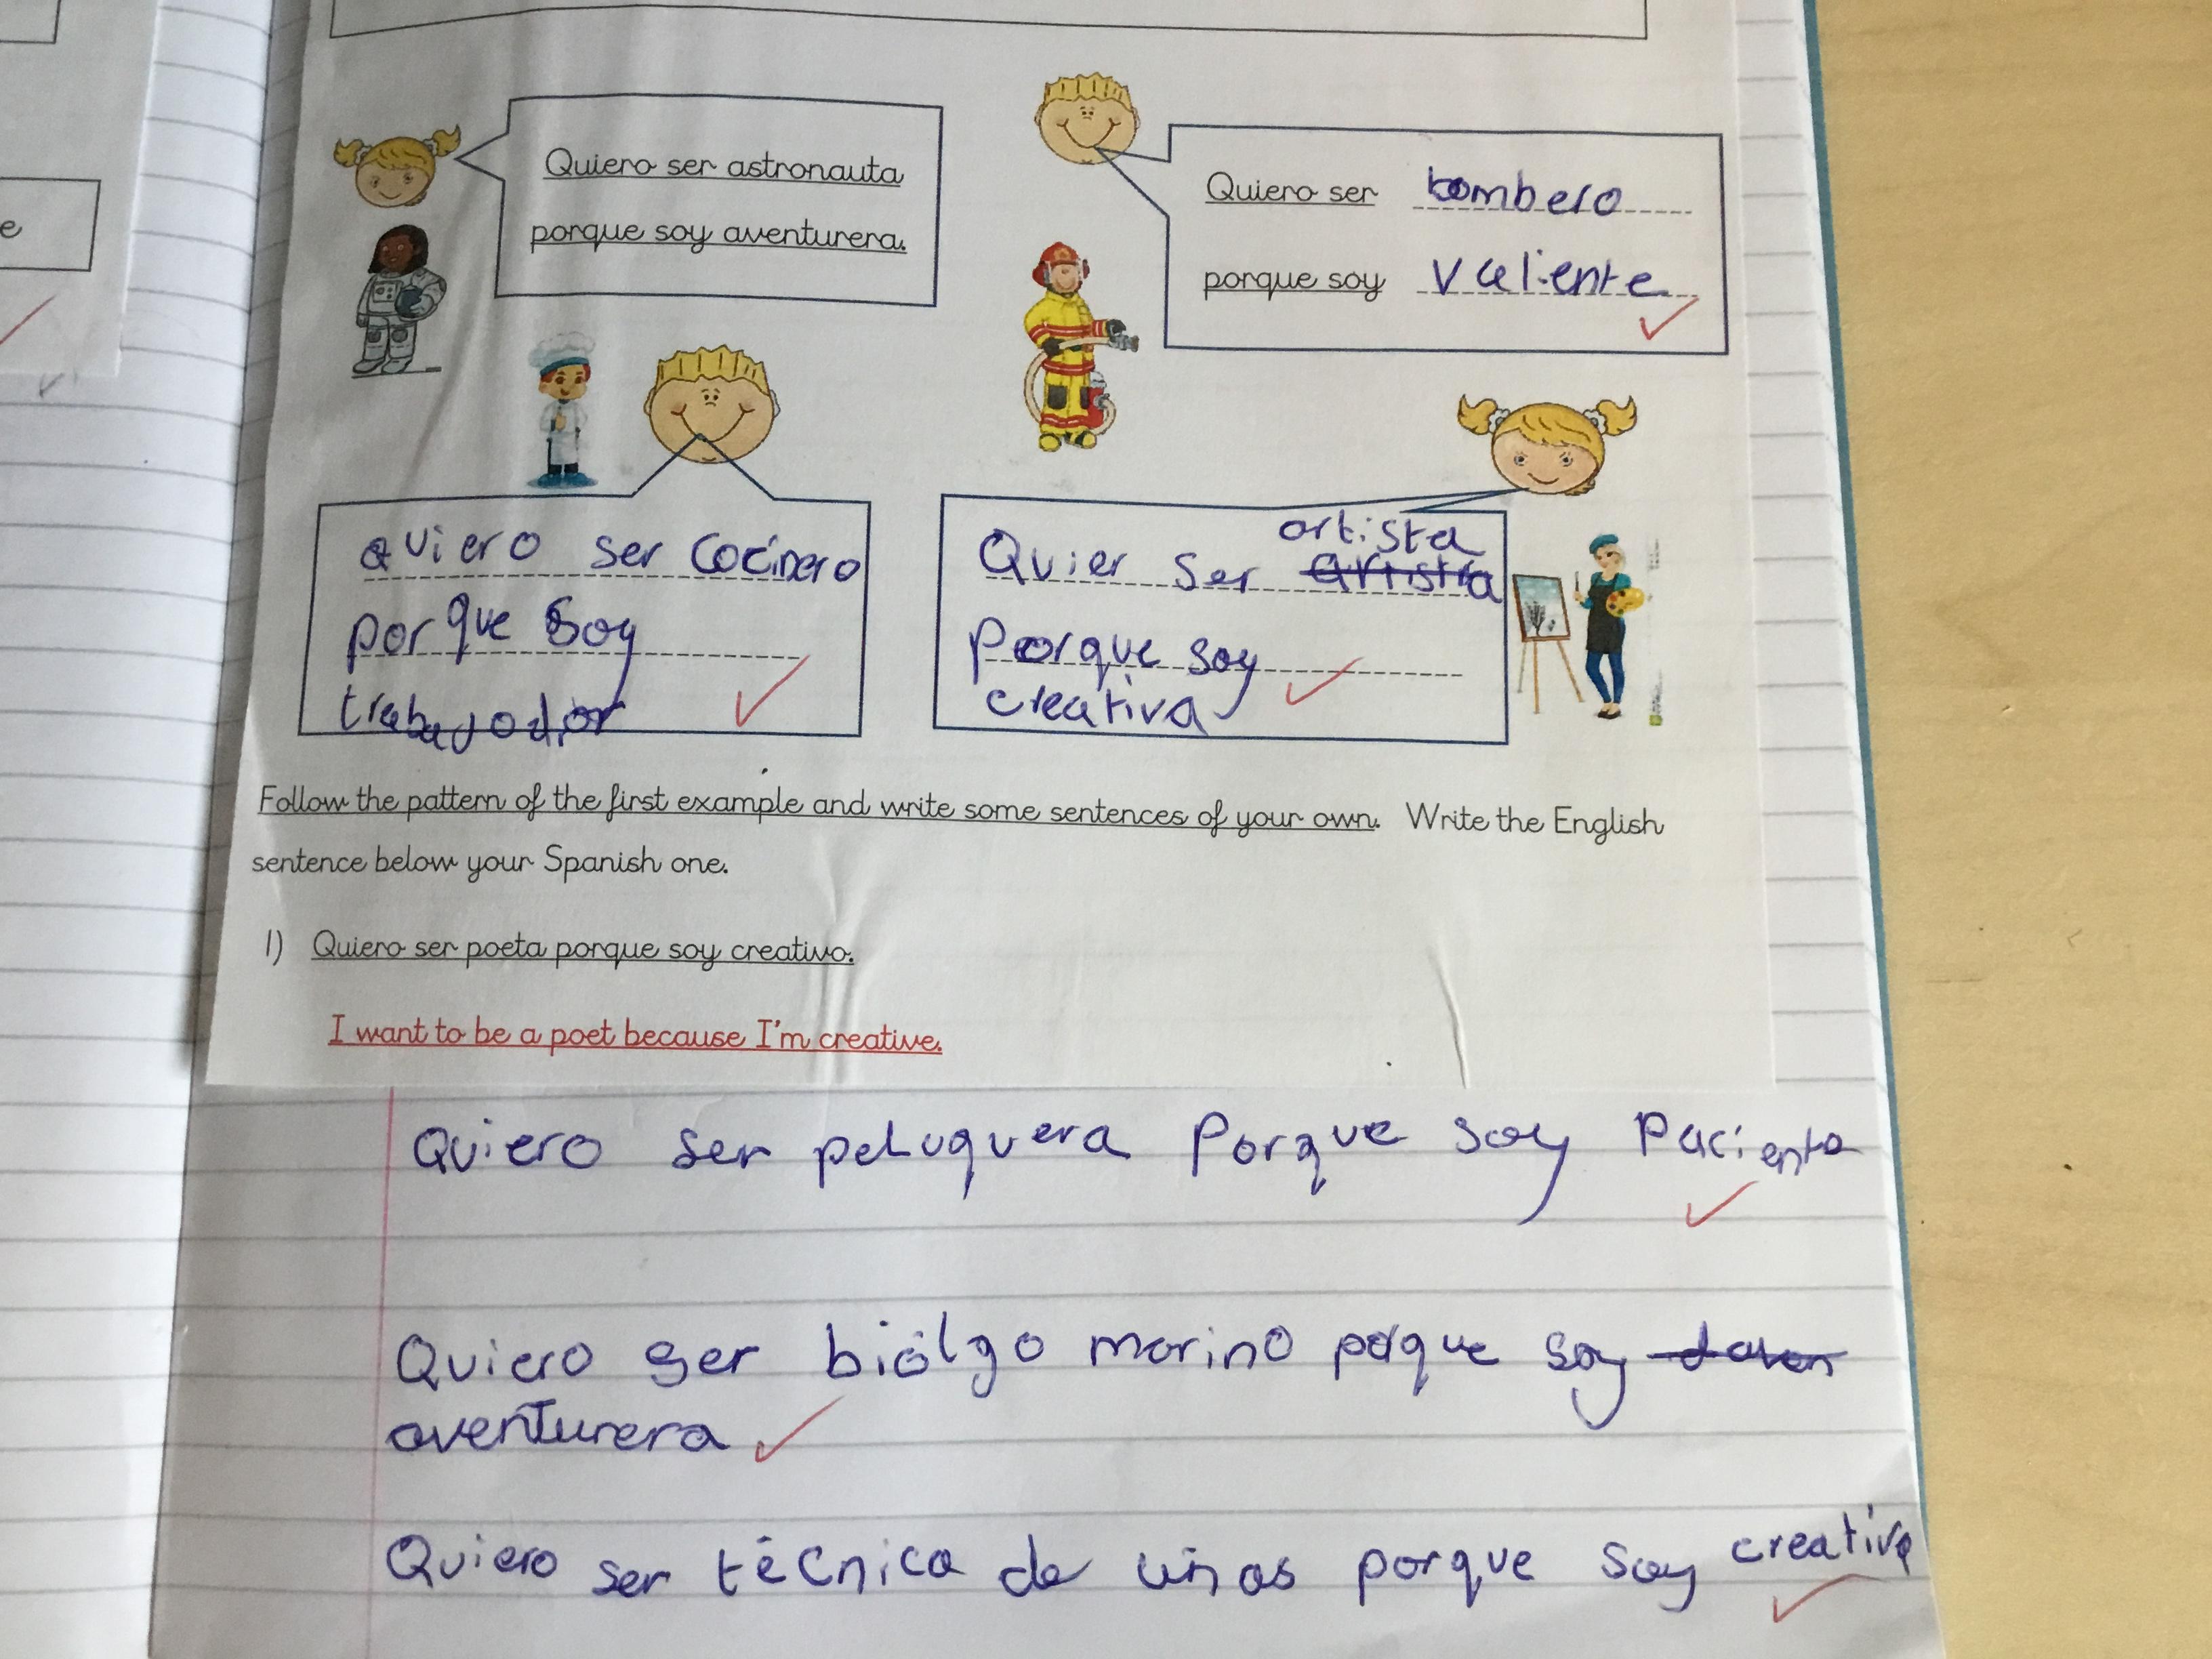 e
Quiero ser astronauta
porque soy aventurera.
Quiero ser bombero
porque soy valiente
Quiero ser cocinero
porque soy
trabajador
artista
Quier ser artistra
porque soy
creativa
Follow the pattern of the first example and write some sentences of your own. Write the English
sentence below your Spanish one.
1) Quiero ser poeta porque soy creativo.
I want to be a poet because I'm creative.
Quiero ser peluquera Porque soy Paciente
Quiero ser biólgo marino porque soy
aventurera
Quiero ser técnica de uñas porque soy creativa